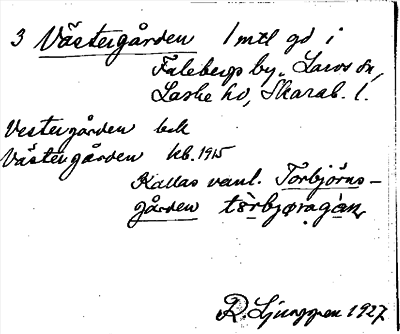 3 Västergården 1 mtl gd i
Falebergs by, Larvs sn,
Laske hd, Skarab. l.
Vestergården bok
Västergården kb. 1915
Kallas vanl. Torbjörns-
gården
R. Ljunggren 1927